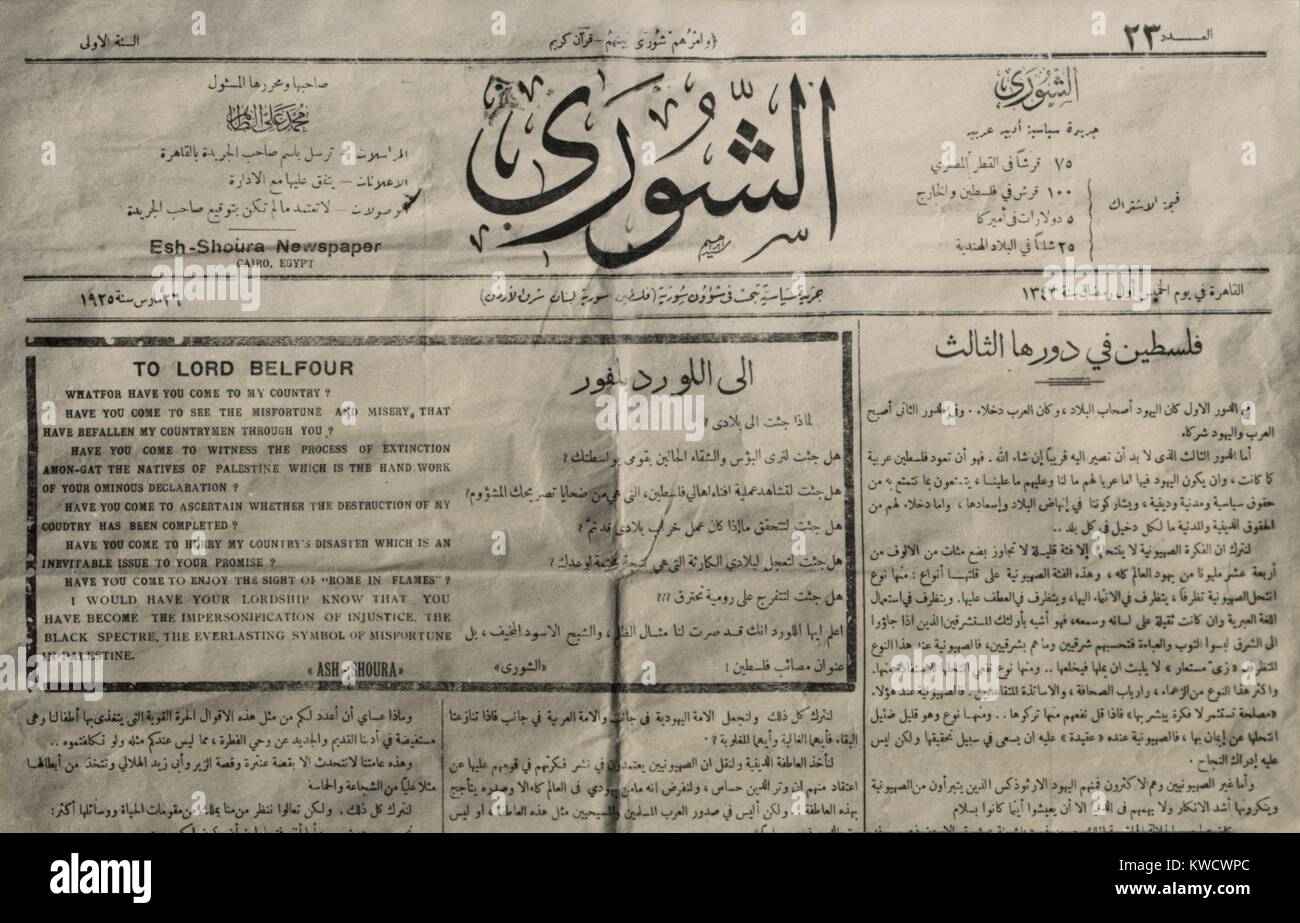 العدد ٢٣
﴿وامرهم شورى بينهم - قرآن كريم
السنة الاولى
الشورى
جريدة سياسية أدبية عربية
قيمة الاشتراك
٧٥ قرشاً في القطر المصري
١٠٠ قرش في فلسطين والخارج
٥ دولارات في أميركا
٢٥ شلناً في البلاد الهندية
الشورى
صاحبها ومحررها المسئول
محمد علي الطاهر
المراسلات - ترسل باسم صاحب الجريدة بالقاهرة
الاعلانات - يتفق عليها مع الادارة
الوصولات - لا تعتمد ما لم تكن بتوقيع صاحب الجريدة
Esh-Shoura Newspaper
CAIRO, EGYPT
القاهرة في يوم الخميس اول رمضان سنة ١٣٤٣
جريدة سياسية تبحث في شؤون سورية (فلسطين سورية لبنان شرق الأردن)
٢٦ مارس سنة ١٩٢٥
فلسطين في دورها الثالث
في الدور الاول كان اليهود أصحاب البلاد، وكان العرب دخلاء. وفي الدور الثاني أصبح
العرب واليهود شركاء.
أما الدور الثالث الذي لا بد أن تصير اليه قريباً إن شاء الله. فهو أن تعود فلسطين عربية
كما كانت، وان يكون اليهود فيها اما عربا لهم ما لنا وعليهم ما علينا، يتمتعون بما نتمتع به من
حقوق سياسية ومدنية ودينية، ويشاركوننا في إنهاض البلاد وإسعادها، واما دخلاء لهم من
الحقوق الدينية والمدنية ما لكل دخيل في كل بلد..
لنترك ان الفكرة الصهيونية لا ينتحلها إلا فئة قليلة لا تتجاوز بضع مئات من الالوف من
أربعة عشر مليونا من يهود العالم كله، وهذه الفئة الصهيونية على قلتها أنواع: منها نوع
انتحل الصهيونية تظرفاً، يتظرف في الانتماء اليها، ويتظرف في العطف عليها. ويتظرف في استعمال
اللغة العبرية وان كانت ثقيلة على لسانه وسمعه، فهو أشبه بأولئك المستشرقين الذين اذا جاؤوا
الى الشرق لبسوا الثوب والعباءة فتحسبهم شرقيين وما هم بشرقيين، فالصهيونية عند هذا النوع
المتظرف «زي مستعار» لا يلبث ان يملها فيخلعها.. ومنها نوع نفعي انتحلها للاستفادة منها.
واكثر هذا النوع من الزعماء، وارباب الصحافة، والاساتذة المتقاعدين. فالصهيونية عند هؤلاء
«مصلحة تستثمر لا فكرة يبشر بها» فاذا قل نفعهم منها تركوها.. ومنها نوع وهو قليل ضئيل
انتحلها عن إيمان بها، فالصهيونية عنده «عقيدة» عليه ان يسعى في سبيل تحقيقها ولكن ليس
عليه إدراك النجاح.
وأما غير الصهيونيين وهم الاكثرون فمنهم اليهود الارثوذكس الذين يتبرأون من الصهيونية
وينكرونها أشد الانكار ولا يهمهم في الدنيا الا أن يعيشوا أينما كانوا بسلام
الى اللورد بلفور
لماذا جئت الى بلادي؟
هل جئت لترى البؤس والشقاء الحالين بقومي بواسطتك؟
هل جئت لتشاهد عملية افناء اهالي فلسطين، التي هي من ضحايا تصريحك المشؤوم؟
هل جئت لتتحقق ما اذا كان عمل خراب بلادي قد تم؟
هل جئت لتعجل لبلادي الكارثة التي هي نتيجة محتمة لوعدك؟
هل جئت لتتفرج على رومية تحترق؟!!
اعلم ايها اللورد انك قد صرت لنا مثال الظلم، والشبح الاسود المخيف، بل
عنوان مصائب فلسطين! «الشورى»
TO LORD BELFOUR
WHATFOR HAVE YOU COME TO MY COUNTRY?
HAVE YOU COME TO SEE THE MISFORTUNE AND MISERY, THAT
HAVE BEFALLEN MY COUNTRYMEN THROUGH YOU?
HAVE YOU COME TO WITNESS THE PROCESS OF EXTINCTION
AMON-GAT THE NATIVES OF PALESTINE WHICH IS THE HAND WORK
OF YOUR OMINOUS DECLARATION?
HAVE YOU COME TO ASCERTAIN WHETHER THE DESTRUCTION OF MY
COUDTRY HAS BEEN COMPLETED?
HAVE YOU COME TO HURRY MY COUNTRY'S DISASTER WHICH IS AN
INEVITABLE ISSUE TO YOUR PROMISE?
HAVE YOU COME TO ENJOY THE SIGHT OF "ROME IN FLAMES"?
I WOULD HAVE YOUR LORDSHIP KNOW THAT YOU
HAVE BECOME THE IMPERSONIFICATION OF INJUSTICE, THE
BLACK SPECTRE, THE EVERLASTING SYMBOL OF MISFORTUNE
IN PALESTINE.
« ASH-SHOURA »
لنترك كل ذلك ولنجعل الامة اليهودية في جانب والامة العربية في جانب فاذا تنازعتا
البقاء فأيهما الغالبة وأيهما المغلوبة؟
لنأخذ العاطفة الدينية ولنقل ان الصهيونيين يعتمدون في نشر فكرتهم في قومهم عليها عن
اعتقاد منهم ان وتر الدين حساس، ولنفرض إنه ما من يهودي في العالم كله الا وصدره يتأجج
بهذه العاطفة. ولكن أليس في صدور العرب المسلمين والمسيحيين مثل هذه العاطفة، او ليس
وماذا عساي أن أعدد لكم من مثل هذه الاقوال الحرة القوية التي يتغذى بها أطفالنا وهي
مستفيضة في أدبنا القديم والجديد عن وحي الفطرة، مما ليس عندكم مثله ولو تكلفتموه..
وهذه عامتنا لا تتحدث الا بقصة عنترة وقصة الزير وأبي زيد الهلالي وتتخذ من أبطالها
مثلا علياً من الشجاعة والحماسة
لنترك كل ذلك. ولكن تعالوا ننظر من منا يملك من مقومات الحياة ووسائلها أكثر:
alamy
Image ID: KWCWPC
www.alamy.com